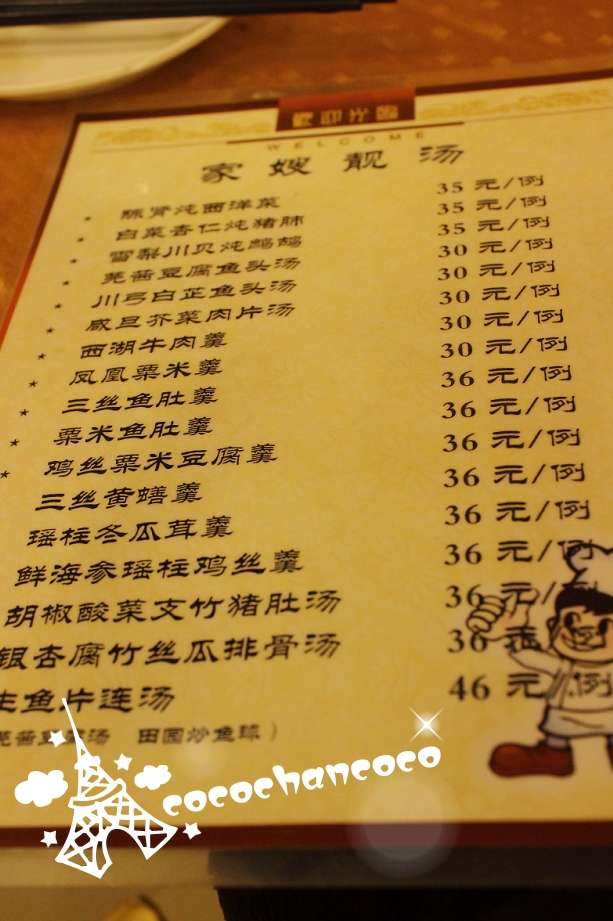 歡迎光臨
WELCOME
家嫂靓汤
陈肾炖西洋菜 35 元/例
白菜杏仁炖猪肺 35 元/例
雪梨川贝炖鹧鸪 35 元/例
芫茜豆腐鱼头汤 30 元/例
川弓白芷鱼头汤 30 元/例
咸旦芥菜肉片汤 30 元/例
西湖牛肉羹 30 元/例
凤凰粟米羹 30 元/例
三丝鱼肚羹 36 元/例
粟米鱼肚羹 36 元/例
鸡丝粟米豆腐羹 36 元/例
三丝黄鳝羹 36 元/例
瑶柱冬瓜茸羹 36 元/例
鲜海参瑶柱鸡丝羹 36 元/例
胡椒酸菜支竹猪肚汤 36 元/例
银杏腐竹丝瓜排骨汤 36
生鱼片连汤 46 元/例
汤 田园炒鱼球）
cocochancoco